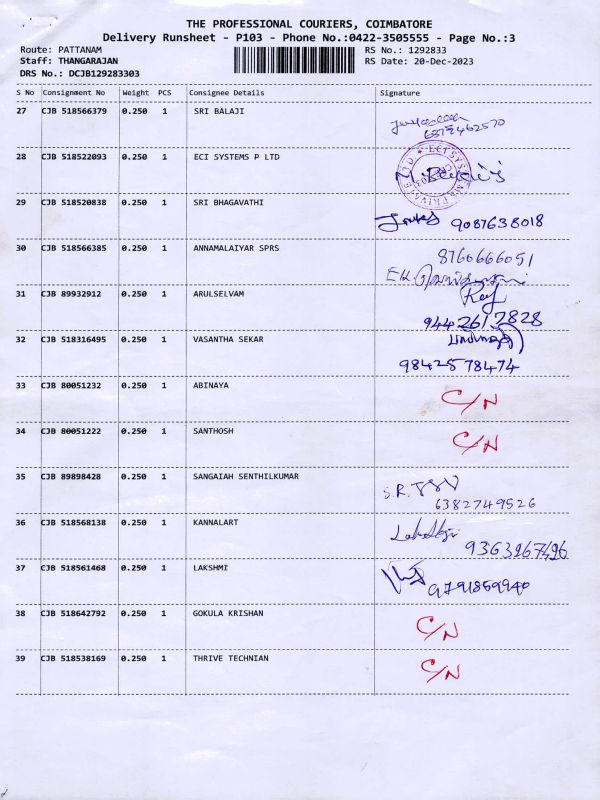 THE PROFESSIONAL COURIERS, COIMBATORE
Delivery Runsheet - P103 - Phone No.:0422-3505555 - Page No.:3
Route: PATTANAM
RS No.: 1292833
Staff: THANGARAJAN
RS Date: 20-Dec-2023
DRS No.: DCJB129283303
S No Consignment No Weight PCS Consignee Details Signature
27 CJB 518566379 0.250 1 SRI BALAJI
28 CJB 518522093 0.250 1 ECI SYSTEMS P LTD
29 CJB 518520838 0.250 1 SRI BHAGAVATHI
9087638018
30 CJB 518566385 0.250 1 ANNAMALAIYAR SPRS
8760666051
31 CJB 89932912 0.250 1 ARULSELVAM
9442612828
32 CJB 518316495 0.250 1 VASANTHA SEKAR
9842578474
33 CJB 80051232 0.250 1 ABINAYA
C/N
34 CJB 80051222 0.250 1 SANTHOSH
C/N
35 CJB 89898428 0.250 1 SANGAIAH SENTHILKUMAR
6382749526
36 CJB 518568138 0.250 1 KANNALART
9363267496
37 CJB 518561468 0.250 1 LAKSHMI
9791859940
38 CJB 518642792 0.250 1 GOKULA KRISHAN
C/N
39 CJB 518538169 0.250 1 THRIVE TECHNIAN
C/N